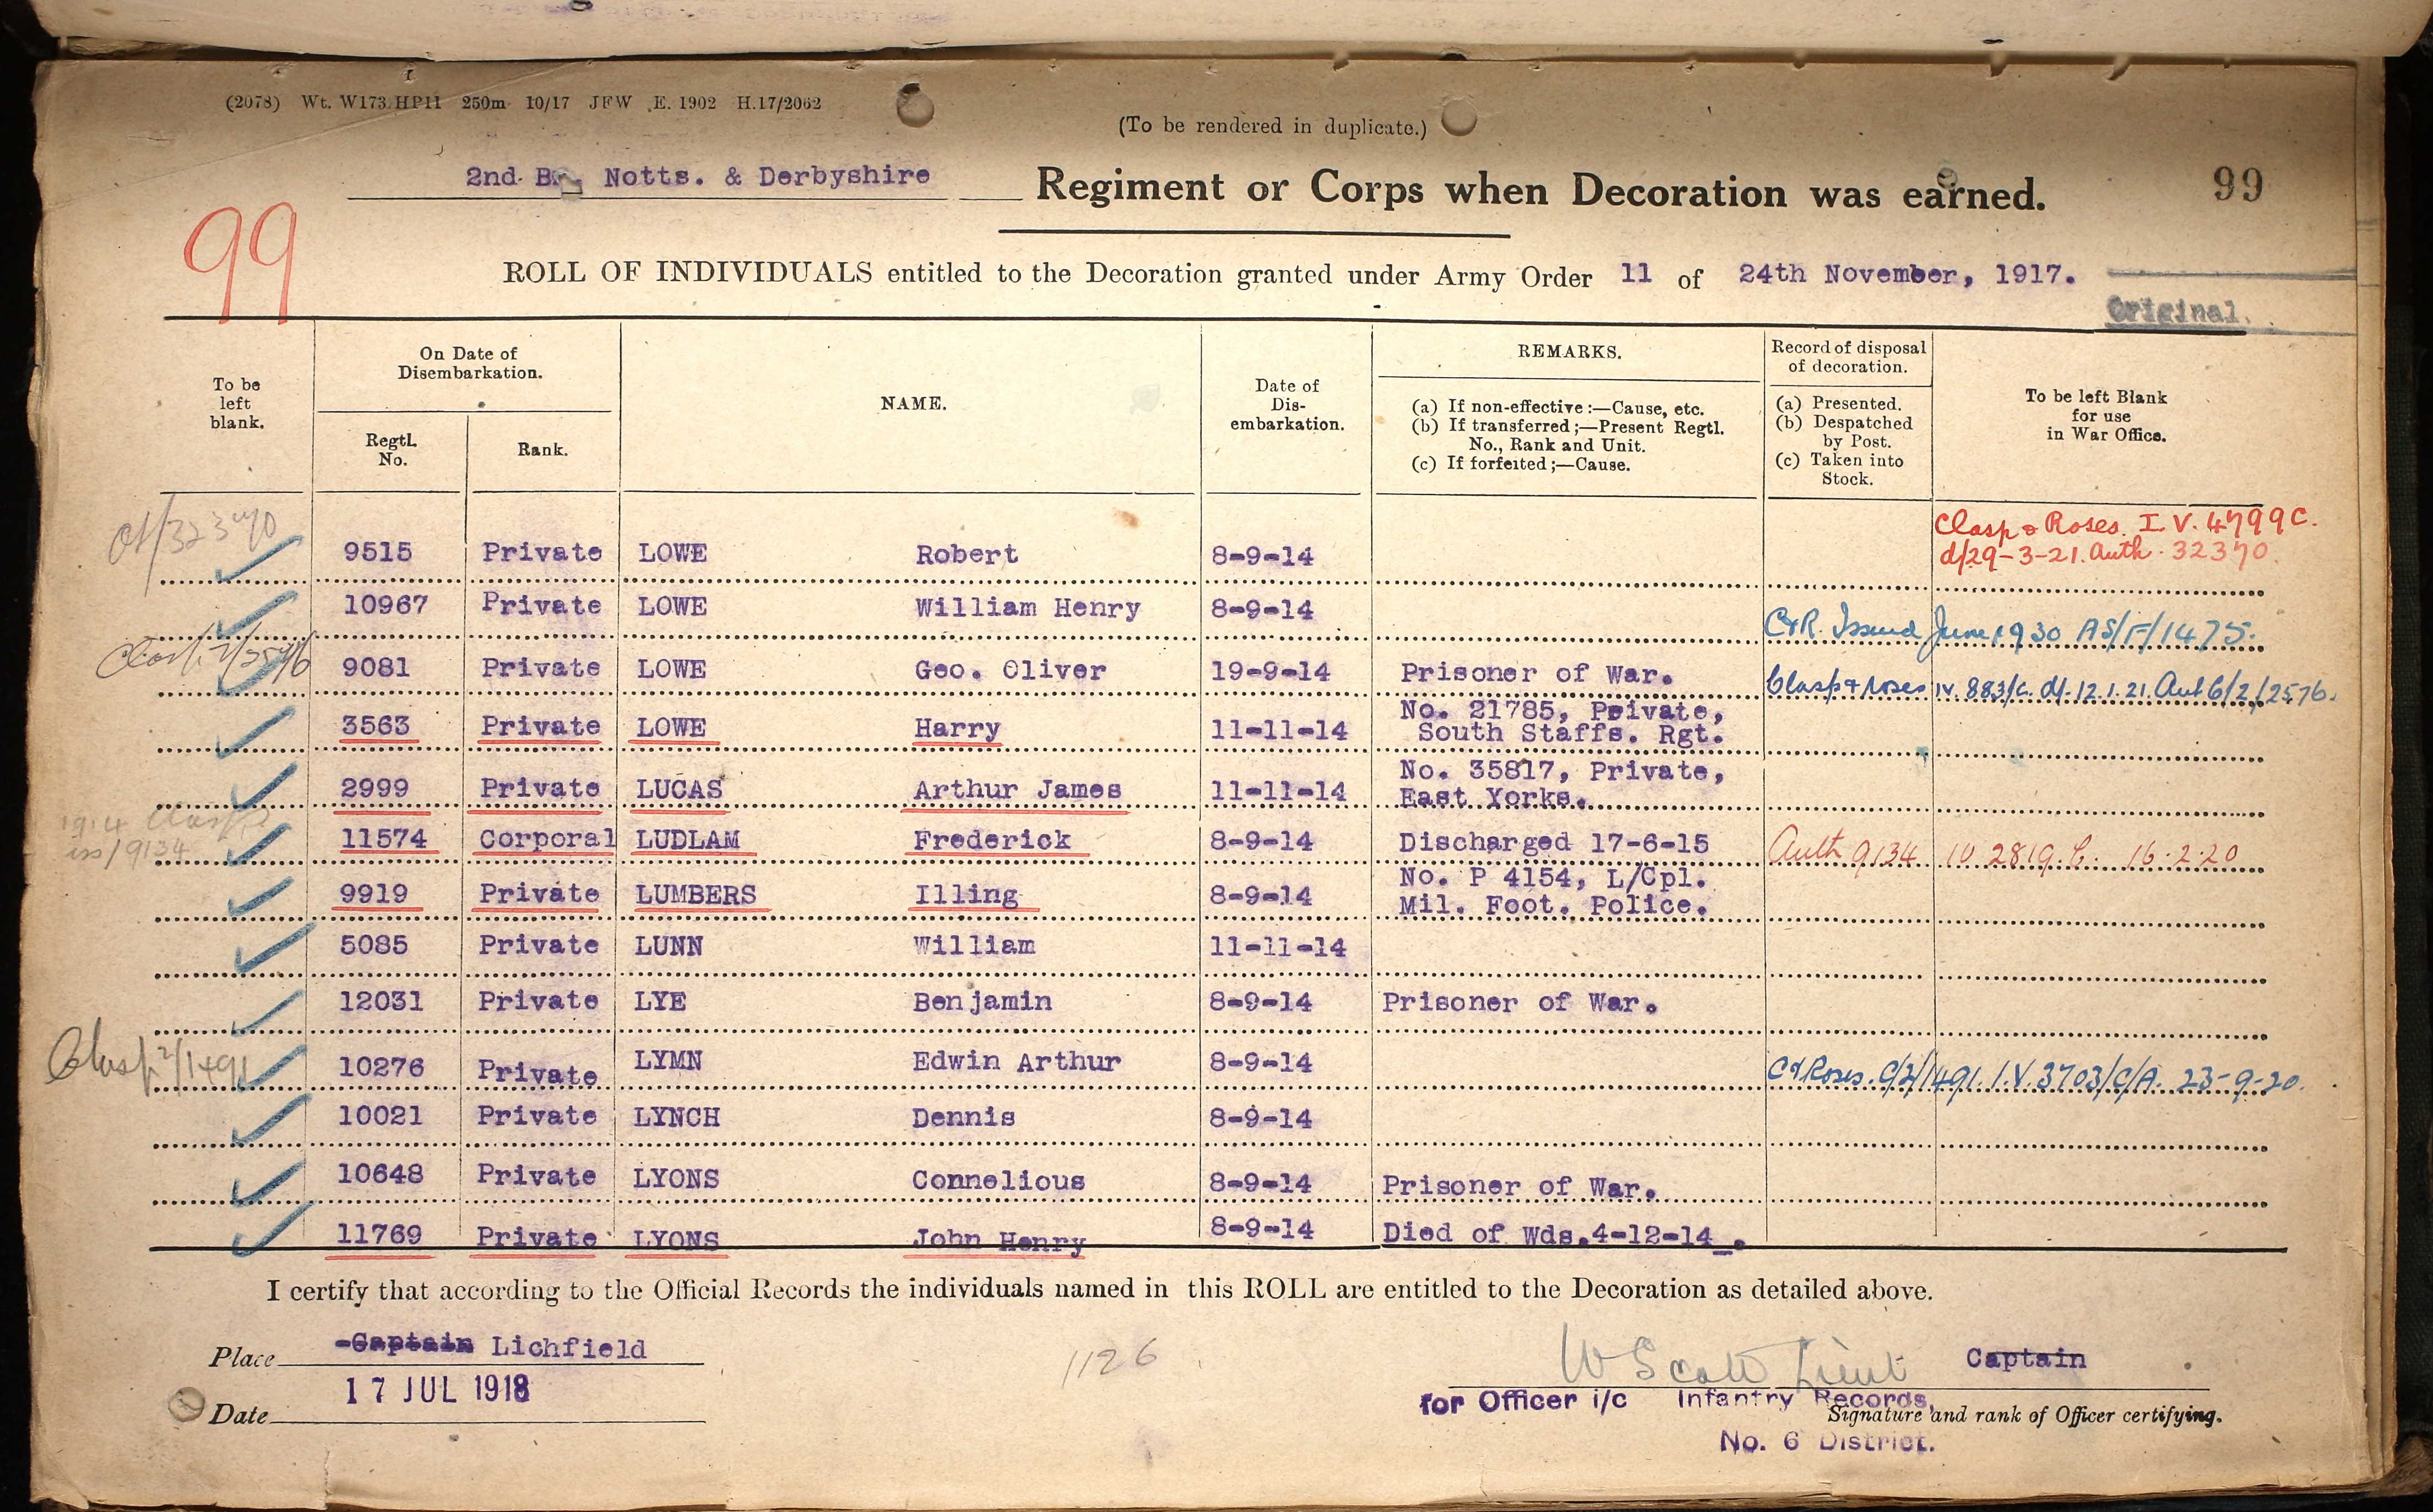 (2078) Wt. W173 HP11 250m 10/17 JFW E. 1902 H.17/2062
(To be rendered in duplicate.)
2nd Notts. & Derbyshire Regiment or Corps when Decoration was earned. 99
99
ROLL OF INDIVIDUALS entitled to the Decoration granted under Army Order 11 of 24th November, 1917.
Original.
To be left blank.
On Date of Disembarkation.
Regtl. No.
Rank.
NAME.
Date of Dis-
embarkation.
REMARKS.
(a) If non-effective :—Cause, etc.
(b) If transferred ;—Present Regtl.
No., Rank and Unit.
(c) If forfeited ;—Cause.
Record of disposal
of decoration.
(a) Presented.
(b) Despatched
by Post.
(c) Taken into
Stock.
To be left Blank
for use
in War Office.
Clasp & Roses I.V. 4799C.
d/29-3-21. Auth. 32370.
9515 Private LOWE Robert 8-9-14
10967 Private LOWE William Henry 8-9-14
C&R. Issued June 1930 AS/F/1475.
9081 Private LOWE Geo. Oliver 19-9-14 Prisoner of War.
Clasp & Roses IV. 883/C. d/. 12.1.21. Aut 6/2/2576.
3563 Private LOWE Harry 11-11-14 No. 21785, Private,
South Staffs. Rgt.
2999 Private LUCAS Arthur James 11-11-14 No. 35817, Private,
East Yorks.
1914 Clasp
iss/9134
11574 Corporal LUDLAM Frederick 8-9-14 Discharged 17-6-15 Auth 9134 IV 2819 16.2.20
9919 Private LUMBERS Illing 8-9-14 No. P 4154, L/Cpl.
Mil. Foot. Police.
5085 Private LUNN William 11-11-14
12031 Private LYE Benjamin 8-9-14 Prisoner of War.
Clasp 2/1491
10276 Private LYMN Edwin Arthur 8-9-14 C&Roses. C/2/1491. I.V. 3703/C/A. 23-9-20.
10021 Private LYNCH Dennis 8-9-14
10648 Private LYONS Connelious 8-9-14 Prisoner of War.
11769 Private LYONS John Henry 8-9-14 Died of Wds.4-12-14.
I certify that according to the Official Records the individuals named in this ROLL are entitled to the Decoration as detailed above.
Place Captain Lichfield
1126
W Scott Lieut Captain
Date 17 JUL 1918
for Officer i/c Infantry Records,
Signature and rank of Officer certifying.
No. 6 District.